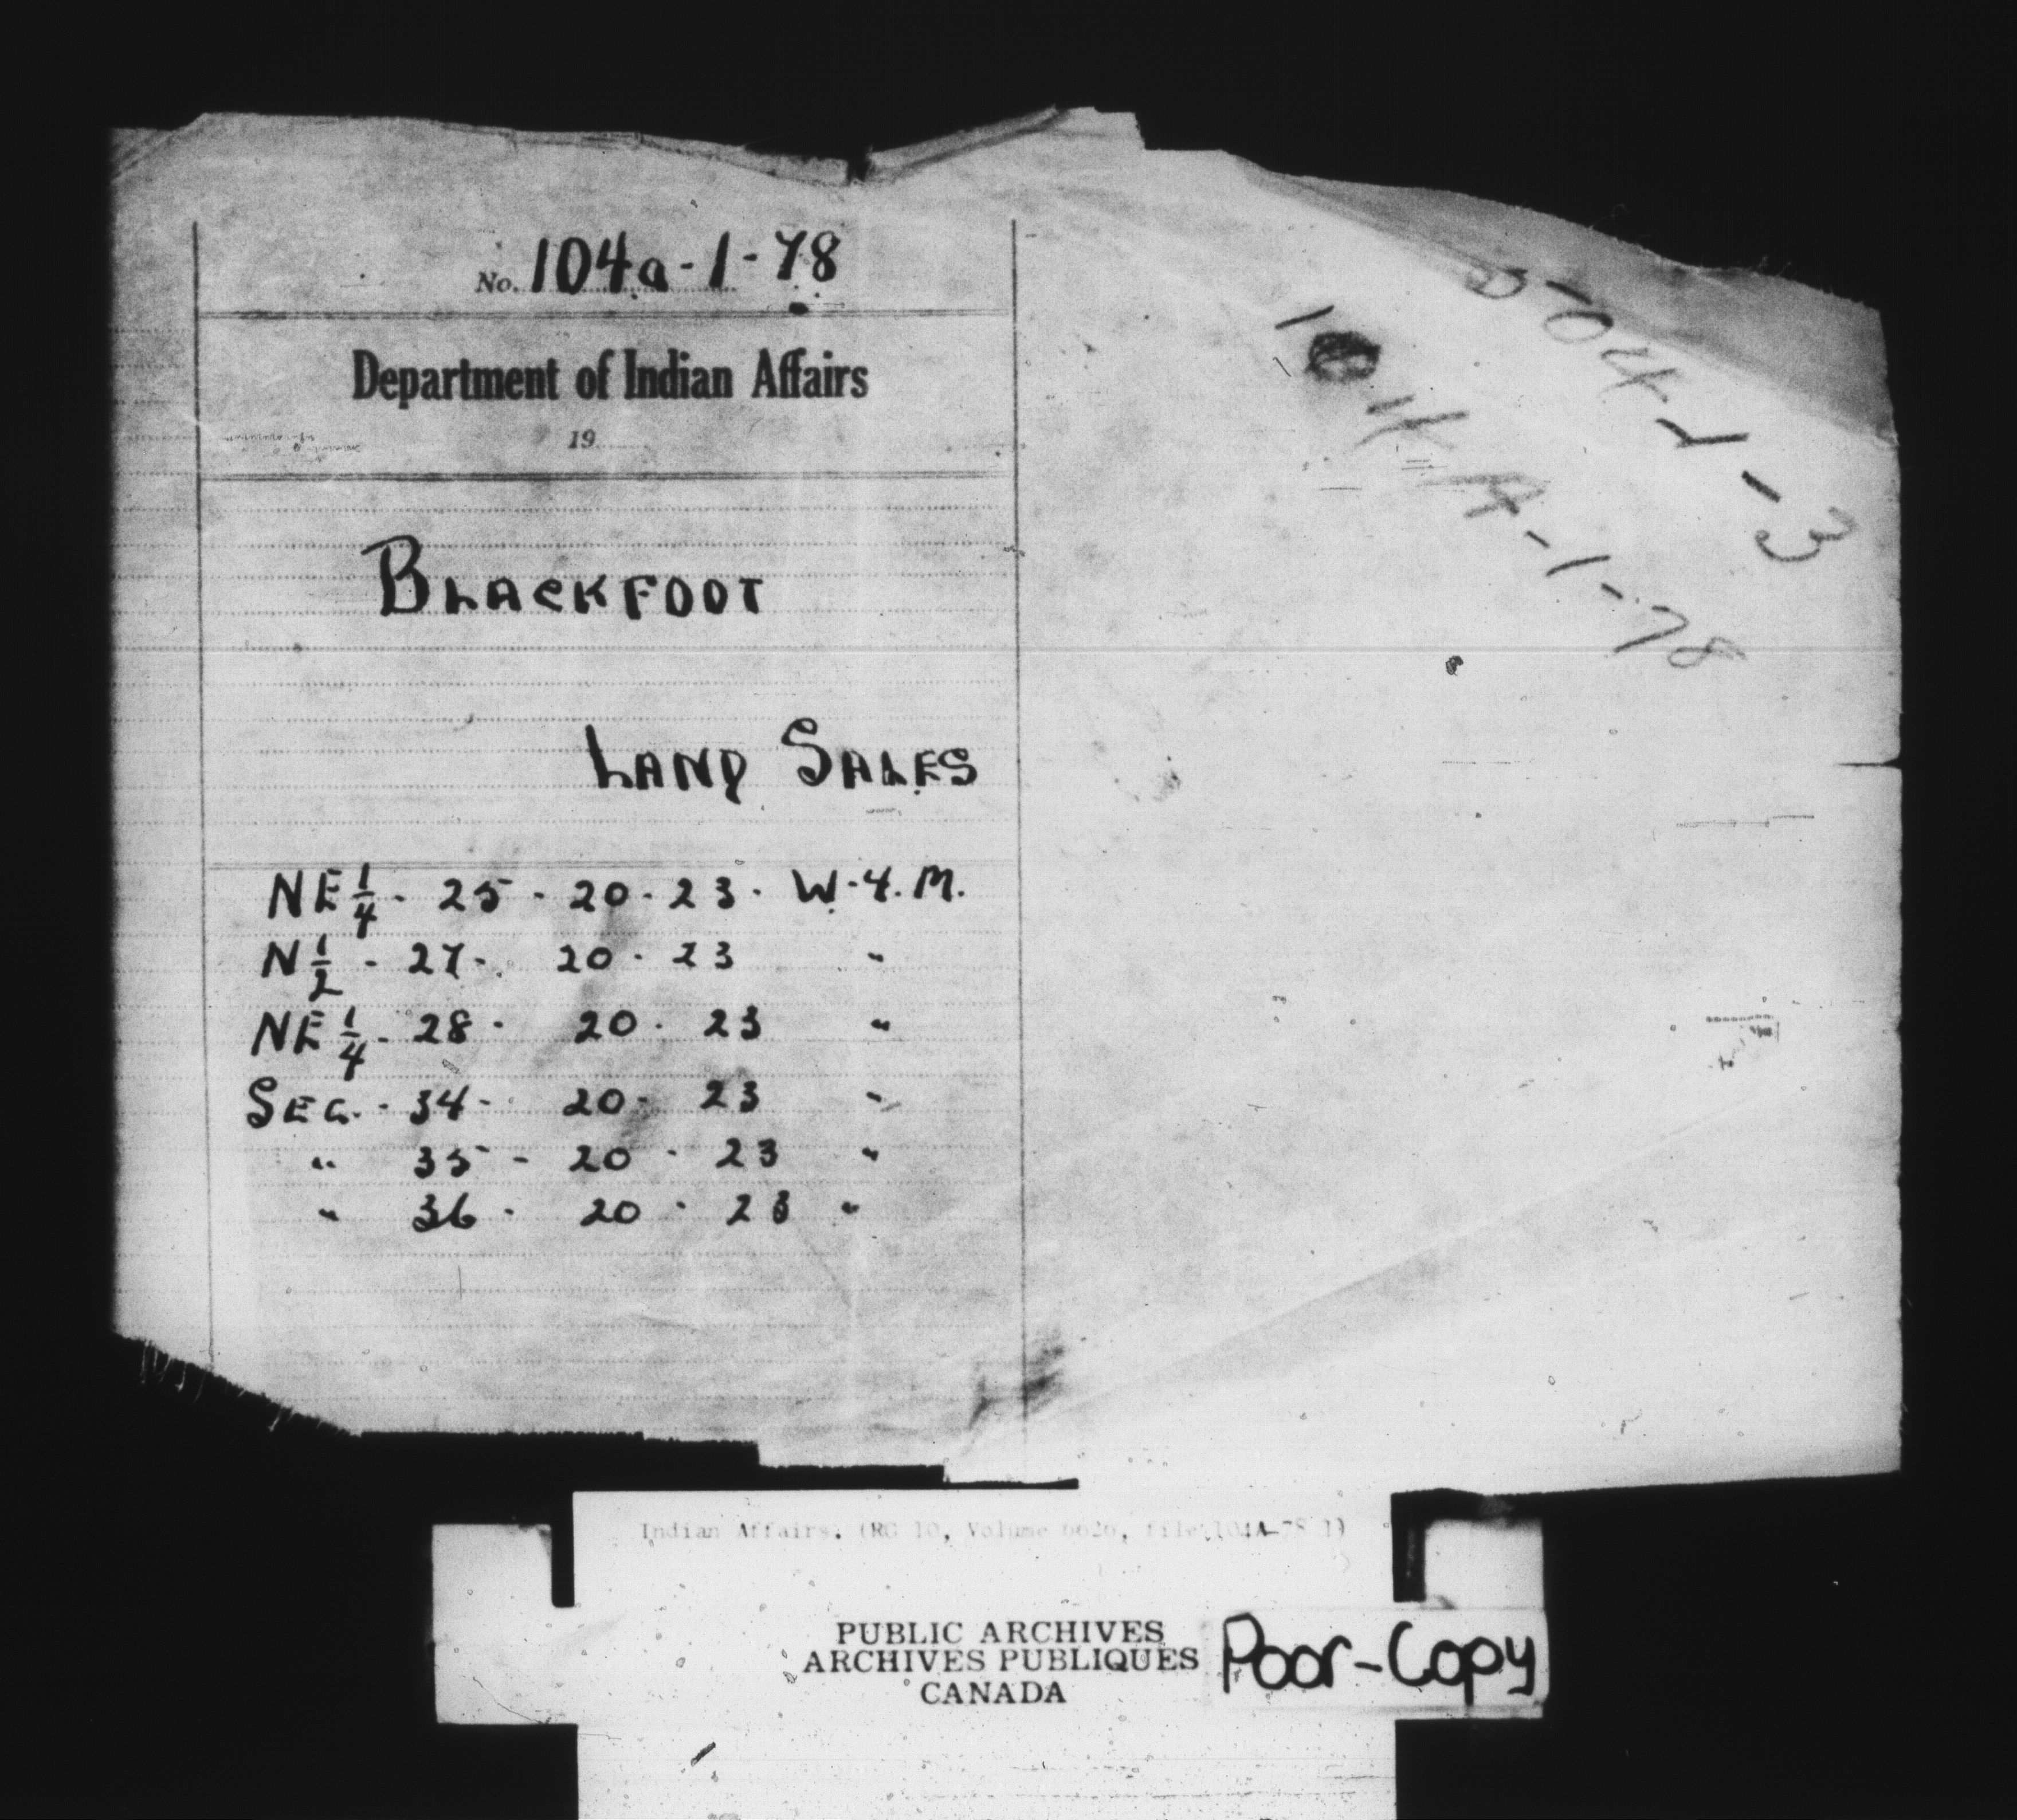 No. 104a-1-78
Department of Indian Affairs
19
BLACKFOOT
LAND SALES
NE 1/4 - 25 - 20 - 23 - W. 4. M.
N 1/2 - 27 - 20 - 23 "
NE 1/4 - 28 - 20 - 23 "
SEC. - 34 - 20 - 23 "
" 35 - 20 - 23 "
" 36 - 20 - 23 "
104A-1-78
Indian Affairs. (RG 10, Volume 6626, file 104A-78-1)
PUBLIC ARCHIVES
ARCHIVES PUBLIQUES
CANADA
Poor-Copy